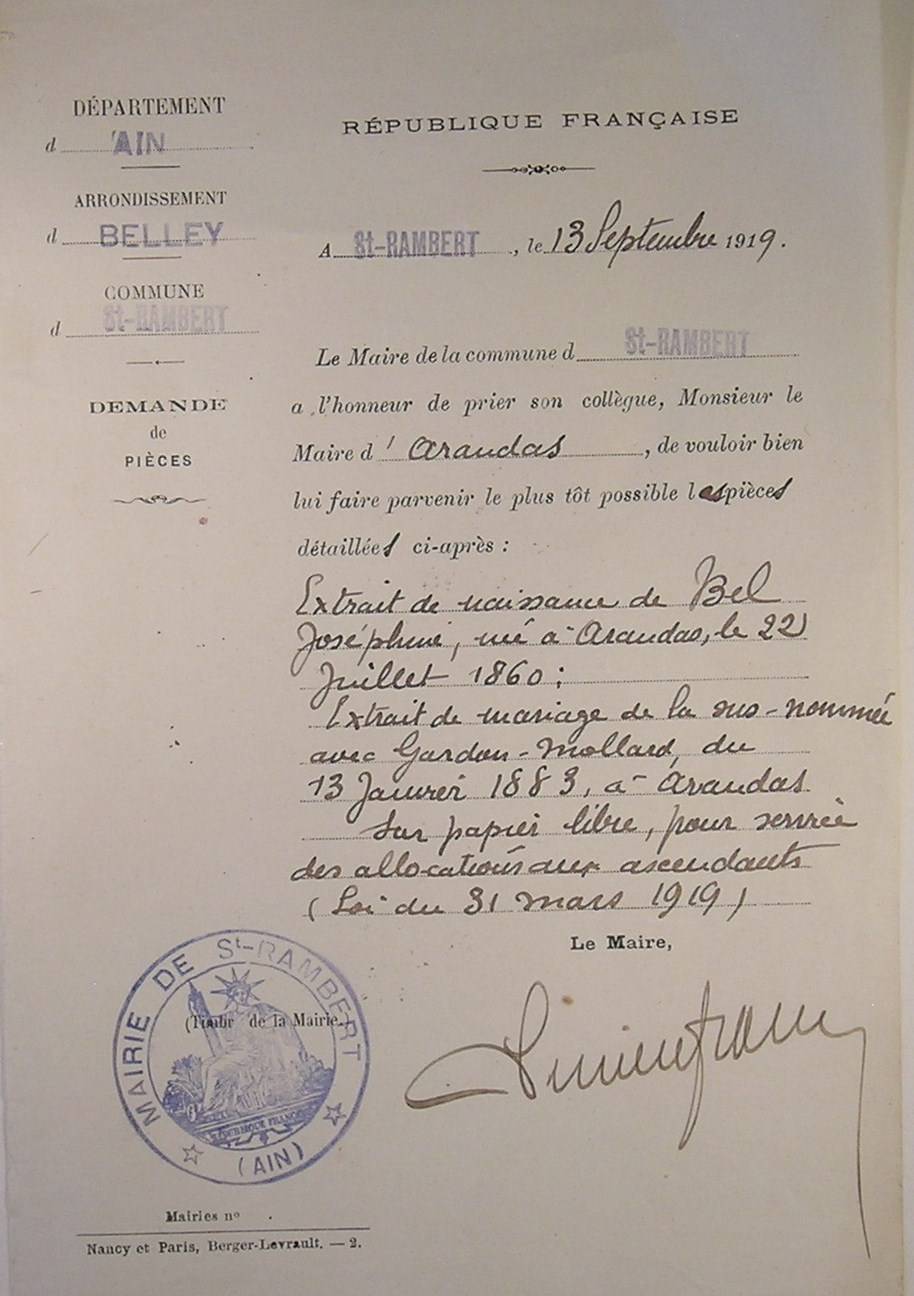 DÉPARTEMENT
d 'AIN
ARRONDISSEMENT
d BELLEY
COMMUNE
d St-RAMBERT
DEMANDE
de
PIÈCES
RÉPUBLIQUE FRANÇAISE
A St-RAMBERT, le 13 Septembre 1919.
Le Maire de la commune d St-RAMBERT
a l'honneur de prier son collègue, Monsieur le
Maire d' Arandas, de vouloir bien
lui faire parvenir le plus tôt possible les pièces
détaillées ci-après :
Extrait de naissance de Bel
Joséphine, née à Arandas, le 22
Juillet 1860 ;
Extrait de mariage de la sus-nommée
avec Gardon-Mollard, du
13 Janvier 1883, à Arandas
Sur papier libre, pour service
des allocations aux ascendants
(Loi du 31 mars 1919)
Le Maire,
MAIRIE DE St-RAMBERT
(Timbre de la Mairie.)
RÉPUBLIQUE FRANÇAISE
(AIN)
Mairies no .
Nancy et Paris, Berger-Levrault. — 2.